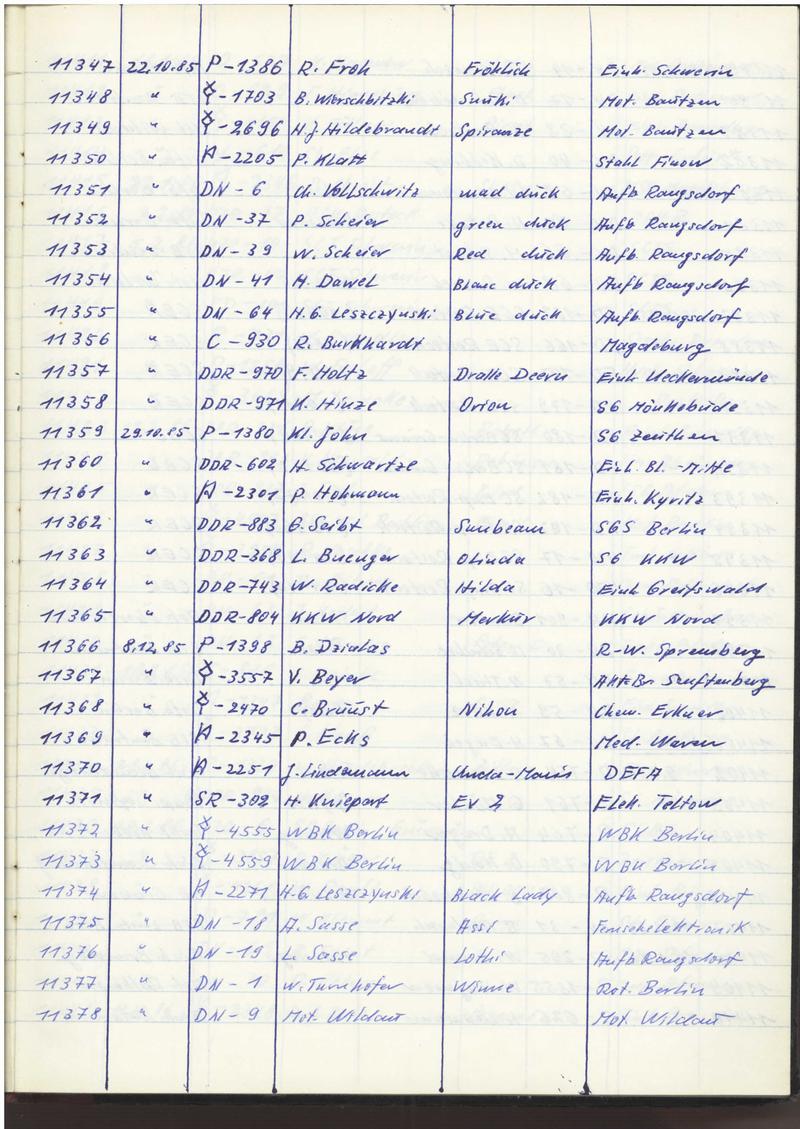 11347 22.10.85 P-1386 R. Froh Fröhlich Einh. Schwerin
11348 " -1703 B. Sunki Mot. Bautzen
11349 " -2696 H.J. Hildebrandt Spiranze Mot. Bautzen
11350 " H-2205 P. Klatt Stahl Finow
11351 " DN-6 Ch. Vollschwitz mad duck Aufb Rangsdorf
11352 " DN-37 P. Scheier green duck Aufb Rangsdorf
11353 " DN-39 W. Scheier Red duck Aufb. Rangsdorf
11354 " DN-41 H. Dawel Blanc duck Aufb Rangsdorf
11355 " DN-64 H.G. Leszczynski Blue duck Aufb Rangsdorf
11356 " C-930 R. Burkhardt Magdeburg
11357 " DDR-970 F. Holtz Dralle Deern Einh Ueckermünde
11358 " DDR-971 K. Hinze Orion SG Mönkebude
11359 29.10.85 P-1380 Kl. John SG Zeuthen
11360 " DDR-602 H. Schwartze Einh. Bl.-Mitte
11361 " H-2301 P. Hohmann Einh. Kyritz
11362 " DDR-883 G. Seibt Sunbeam SGS Berlin
11363 " DDR-368 L. Buenger Olinda SG KKW
11364 " DDR-743 W. Radicke Hilda Einh Greifswald
11365 " DDR-804 KKW Nord Merkur KKW Nord
11366 8.12.85 P-1398 B. Dzialas R-W. Spremberg
11367 " -3557 V. Beyer Senftenberg
11368 " -2470 C. Brüüst Nihon Chem. Erkner
11369 " H-2345 P. Ecks Med. Waren
11370 " H-2251 J. Lindemann DEFA
11371 " SR-302 H. Kniepert Ev 2 Elek. Teltow
11372 " -4555 WBK Berlin WBK Berlin
11373 " -4559 WBK Berlin WBK Berlin
11374 " H-2271 H-G. Leszczynski Black Lady Aufb Rangsdorf
11375 " DN-18 A. Sasse Assi Fernsehelektronik
11376 " DN-19 L. Sasse Lothi Aufb Rangsdorf
11377 " DN-1 W. Turnhofer Winne Rot. Berlin
11378 " DN-9 Mot. Wildau Mot Wildau